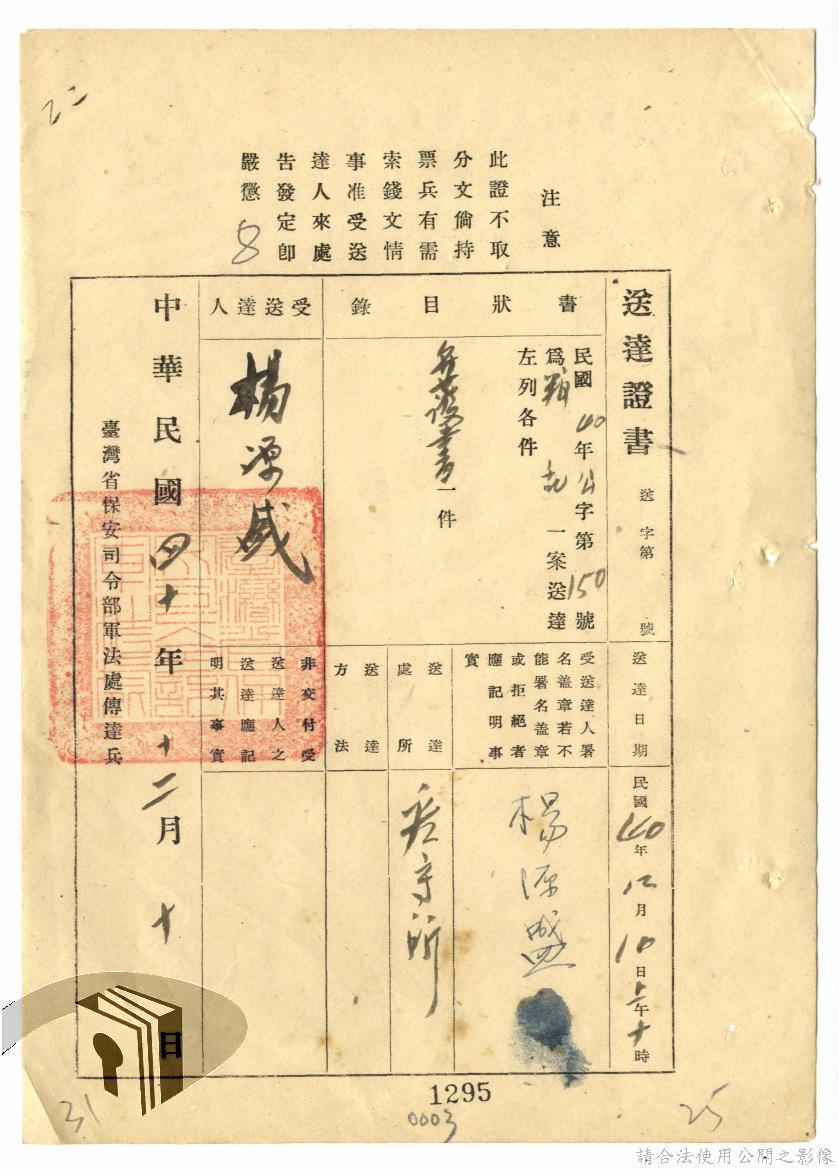 22
注意
此證不取
分文倘持
票兵有需
索錢文情
事准受送
達人來處
告發定卽
嚴懲
8
送達證書
送字第 號
送達日期
民國40年12月10日上午十時
書狀目錄
民國40年公字第150號
為叛亂一案送達
左列各件
弁護書一件
受送達人署
名蓋章若不
能署名蓋章
或拒絕者
應記明事
實
楊源盛
送達處所
看守所
送達方法
受送達人
楊源盛
非交付受
送達人之
送達應記
明其事實
中華民國四十年十二月十日
臺灣省保安司令部軍法處傳達兵
1295
0003
31
25
請合法使用公開之影像